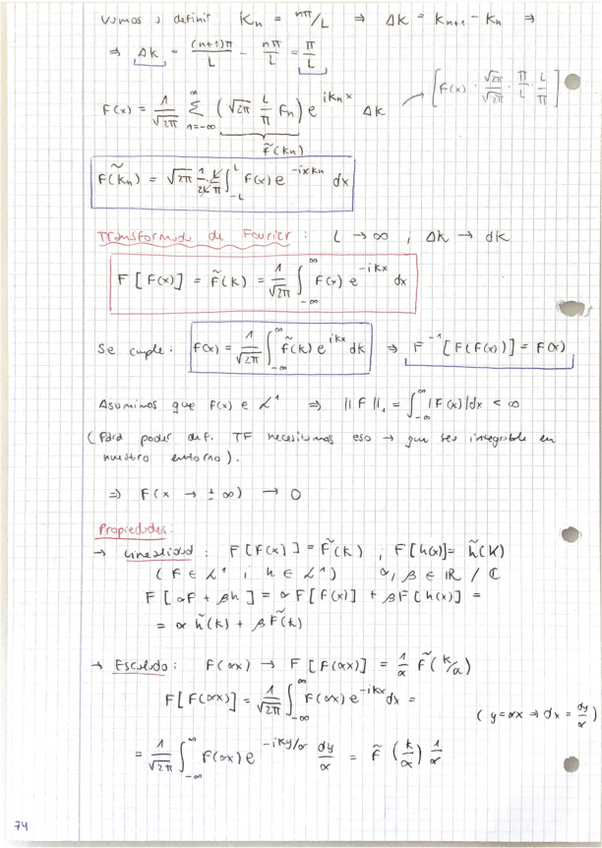 Vamos a definir Kn = nπ/L ⇒ Δk = Kn+1 − Kn ⇒
⇒ Δk = (n+1)π/L − nπ/L = π/L
F(x) = 1/√2π Σ_{n=-∞}^{∞} (√2π L/π Fn) e^{iKn x} Δk → [F(x) · √2π/√2π · π/L · L/π]
f̃(Kn)
F̃(Kn) = √2π 1/2L · L/π ∫_{-L}^{L} F(x) e^{-ixkn} dx
Transformada de Fourier : L → ∞ ; Δk → dk
F[F(x)] = f̃(k) = 1/√2π ∫_{-∞}^{∞} F(x) e^{-ikx} dx
Se cumple : F(x) = 1/√2π ∫_{-∞}^{∞} f̃(k) e^{ikx} dk ⇒ F^{-1}[F(F(x))] = F(x)
Asumimos que F(x) ∈ L^1 ⇒ ||F||_1 = ∫_{-∞}^{∞} |F(x)|dx < ∞
(Para poder def. TF necesitamos eso → que sea integrable en
nuestro entorno).
⇒ F(x → ± ∞) → 0
Propiedades.
→ Linealidad : F[F(x)] = F̃(k) ; F[h(x)] = h̃(k)
(F ∈ L^1 ; h ∈ L^1) α, β ∈ ℝ / ℂ
F[αF + βh] = αF[F(x)] + βF[h(x)] =
= α h̃(k) + β F̃(k)
→ Escalado : F(αx) → F[F(αx)] = 1/α F̃(k/α)
F[F(αx)] = 1/√2π ∫_{-∞}^{∞} F(αx) e^{-ikx} dx =
(y = αx ⇒ dx = dy/α)
= 1/√2π ∫_{-∞}^{∞} F(αx) e^{-iky/α} dy/α = F̃(k/α) 1/α
74